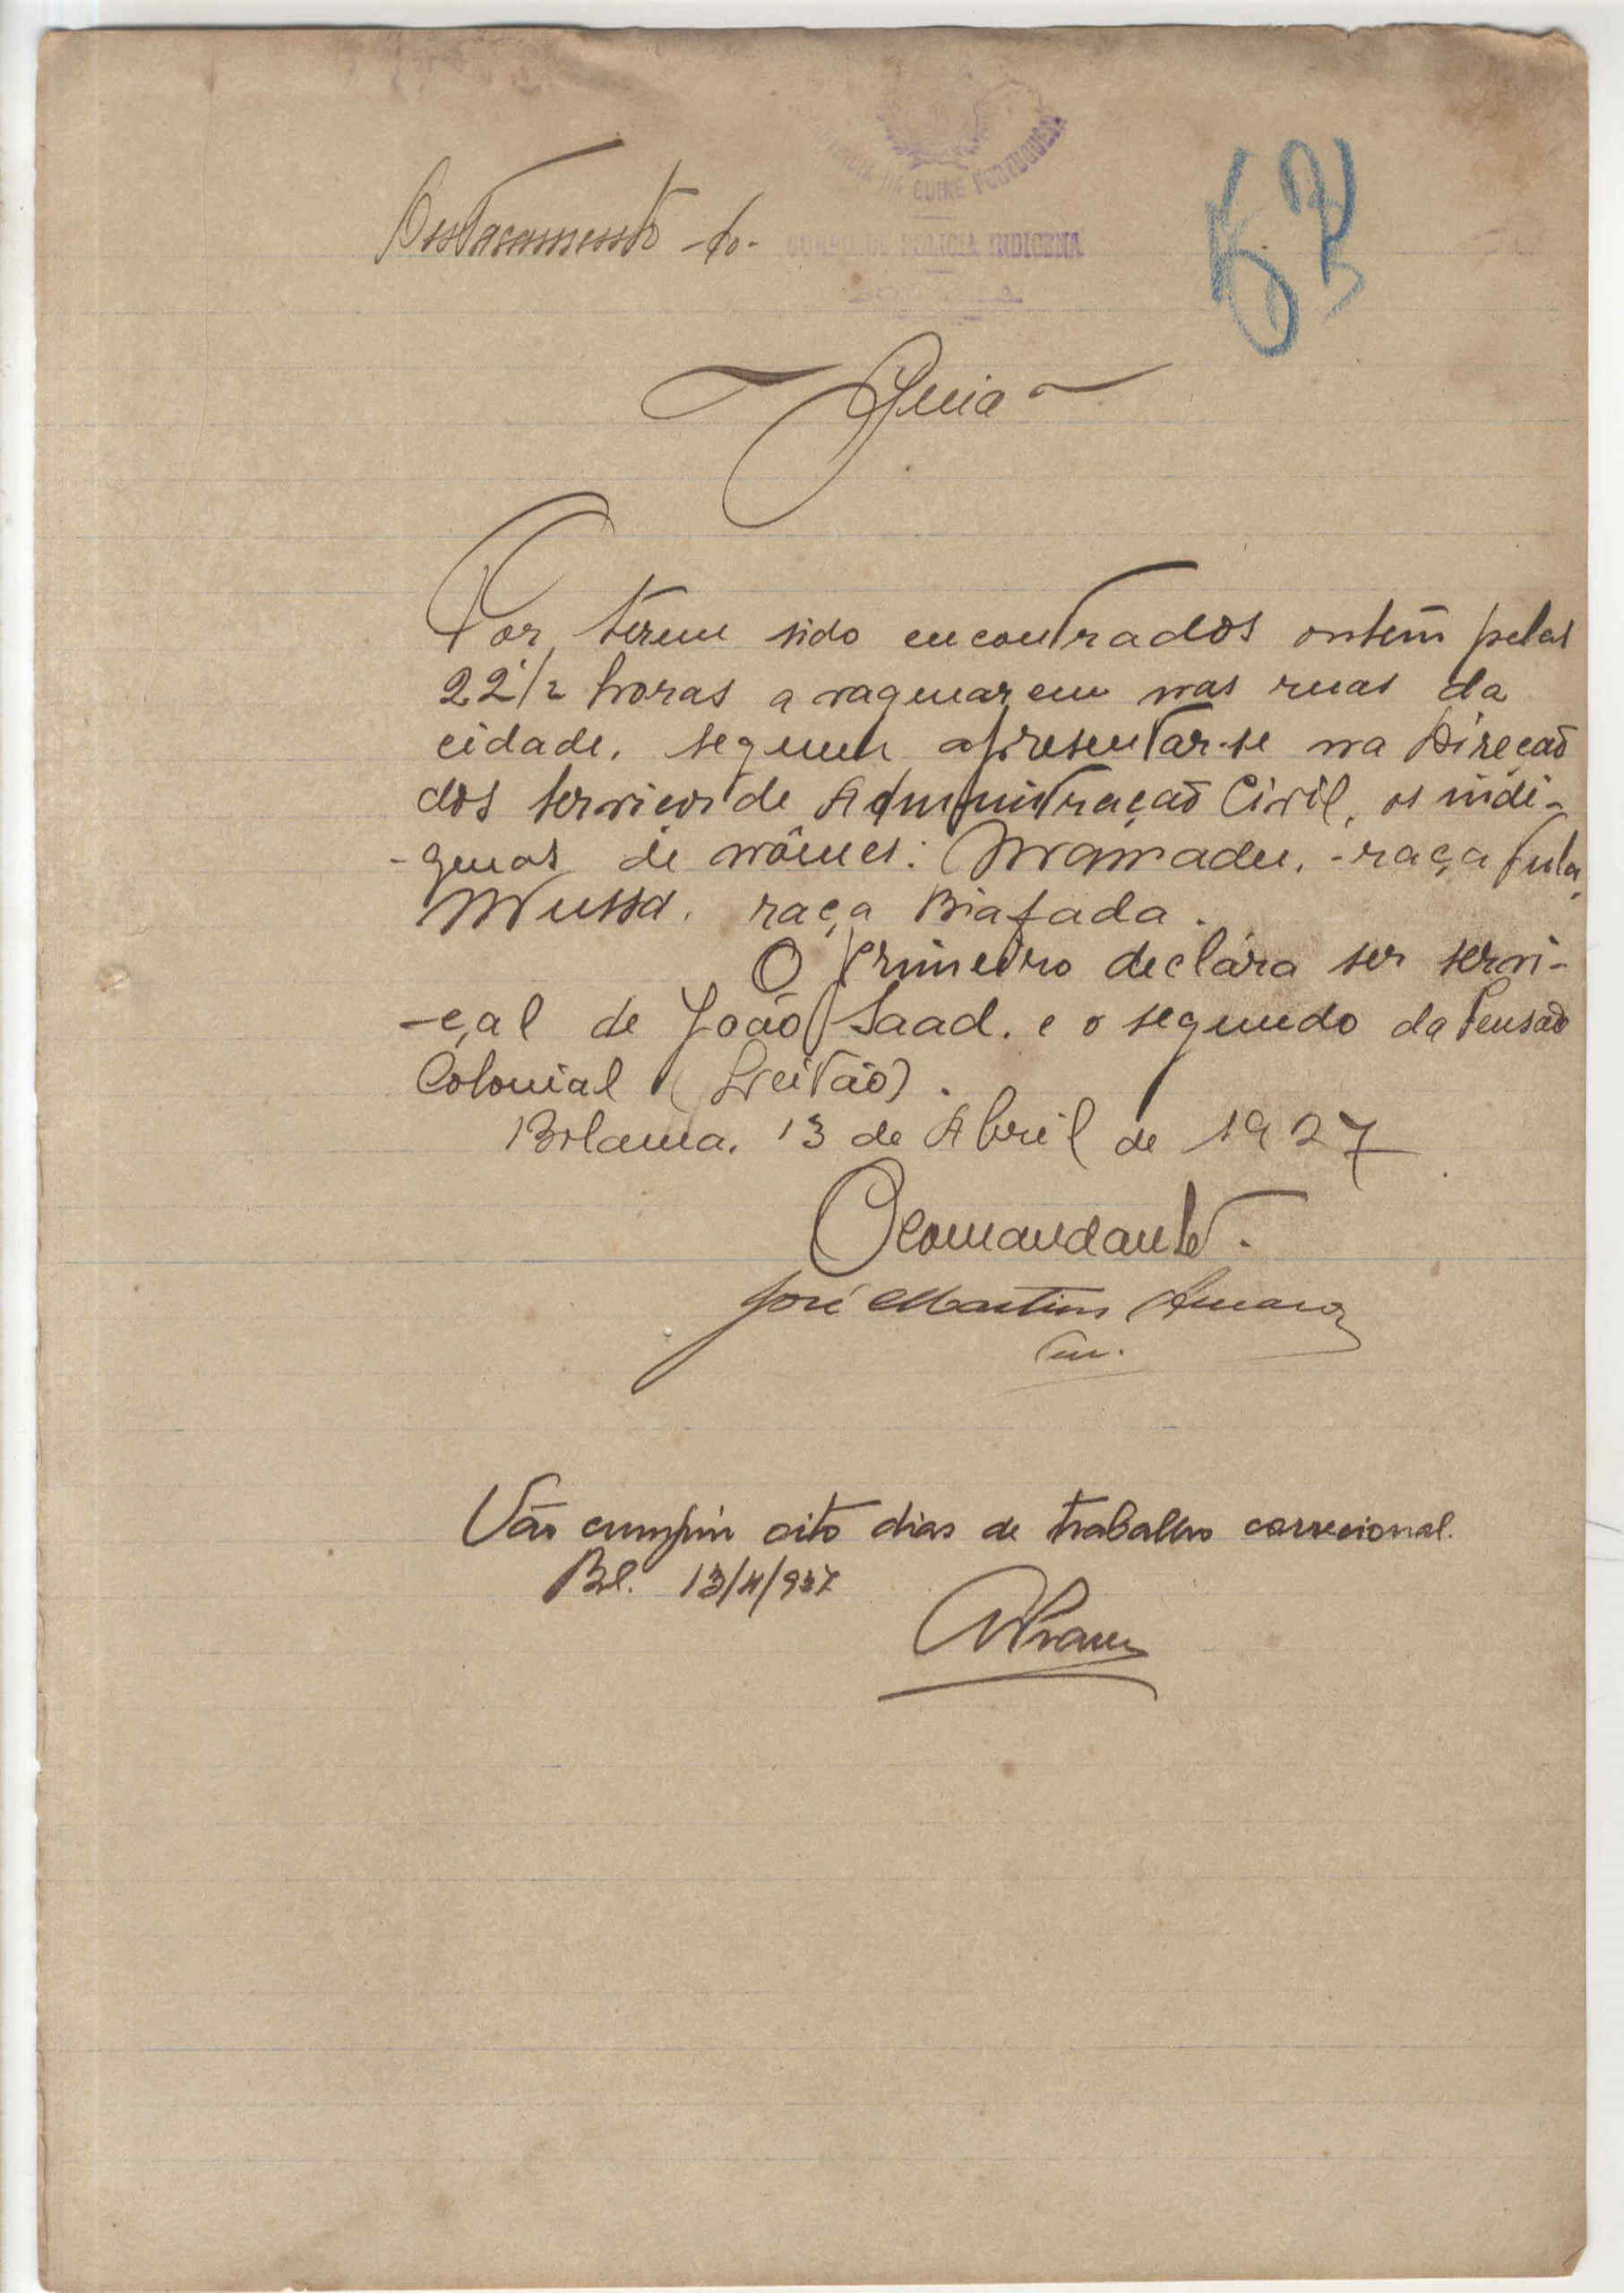 PROVINCIA DA GUINÉ PORTUGUESA
Destacamento do CORPO DE POLICIA INDIGENA
Guia
Por terem sido encontrados ontem pelas
22 1/2 horas a vaguearem nas ruas da
cidade, seguem apresentar-se na Direcão
dos serviços de Administração Civil, os indi-
-genas de nômes: Mamadu, -raça fula,
Mussá, raça Biafada.
O primeiro declára ser servi-
-çal de João Saad, e o segundo da Pensão
Colonial (Leitão).
Bolama, 13 de Abril de 1927
O Comandante.
José Martins
Vão cumprir oito dias de trabalho correcional.
Bl. 13/4/927